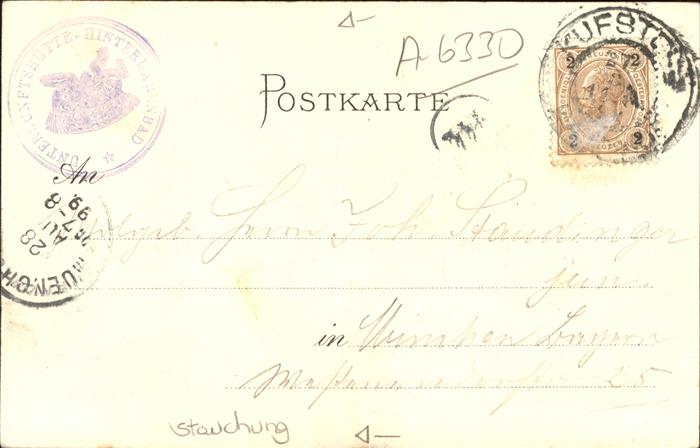 UNTERKUNFTSHÜTTE-HINTERBÄRENBAD
A-6330
KUFSTEIN
27
2 2
2 2
POSTKARTE
An
MUENCHEN
28 AU
7-8
99.
Wolgeb. Herrn Joh. Staudinger
jun.
in München Bayern
25
Stauchung